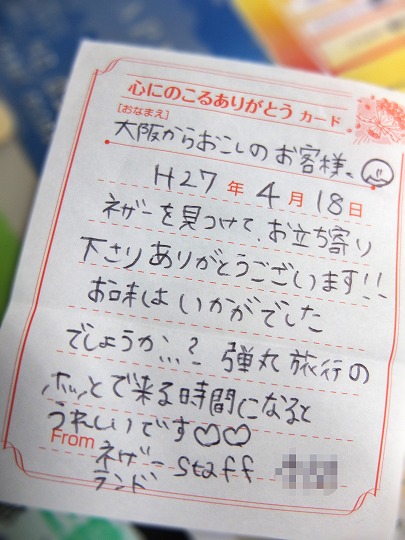 心にのこるありがとう カード
[おなまえ]
大阪からおこしの お客様、
H27年 4月 18日
ネザーを見つけて、お立ち寄り
下さりありがとうございます!!
お味は いかがでした
でしょうか...? 弾丸旅行の
ホッとで来る時間になると
うれしいです♡♡
From ネザー staff
ランド